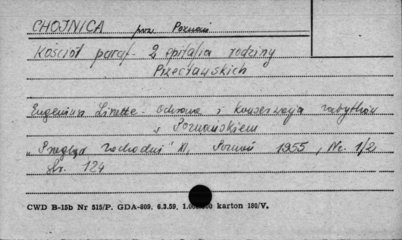 CHOJNICA pow. Poznań
Kościół paraf. 2 epitafia rodziny
Przecławskich
Eugeniusz Linette - Ochrona i konserwacja zabytków
w Poznańskiem
"Przegląd Zachodni" XI, Poznań 1955, Nr. 1/2
Str. 124
CWD B-15b Nr 515/P. GDA-809. 6.3.59. karton 180/V.